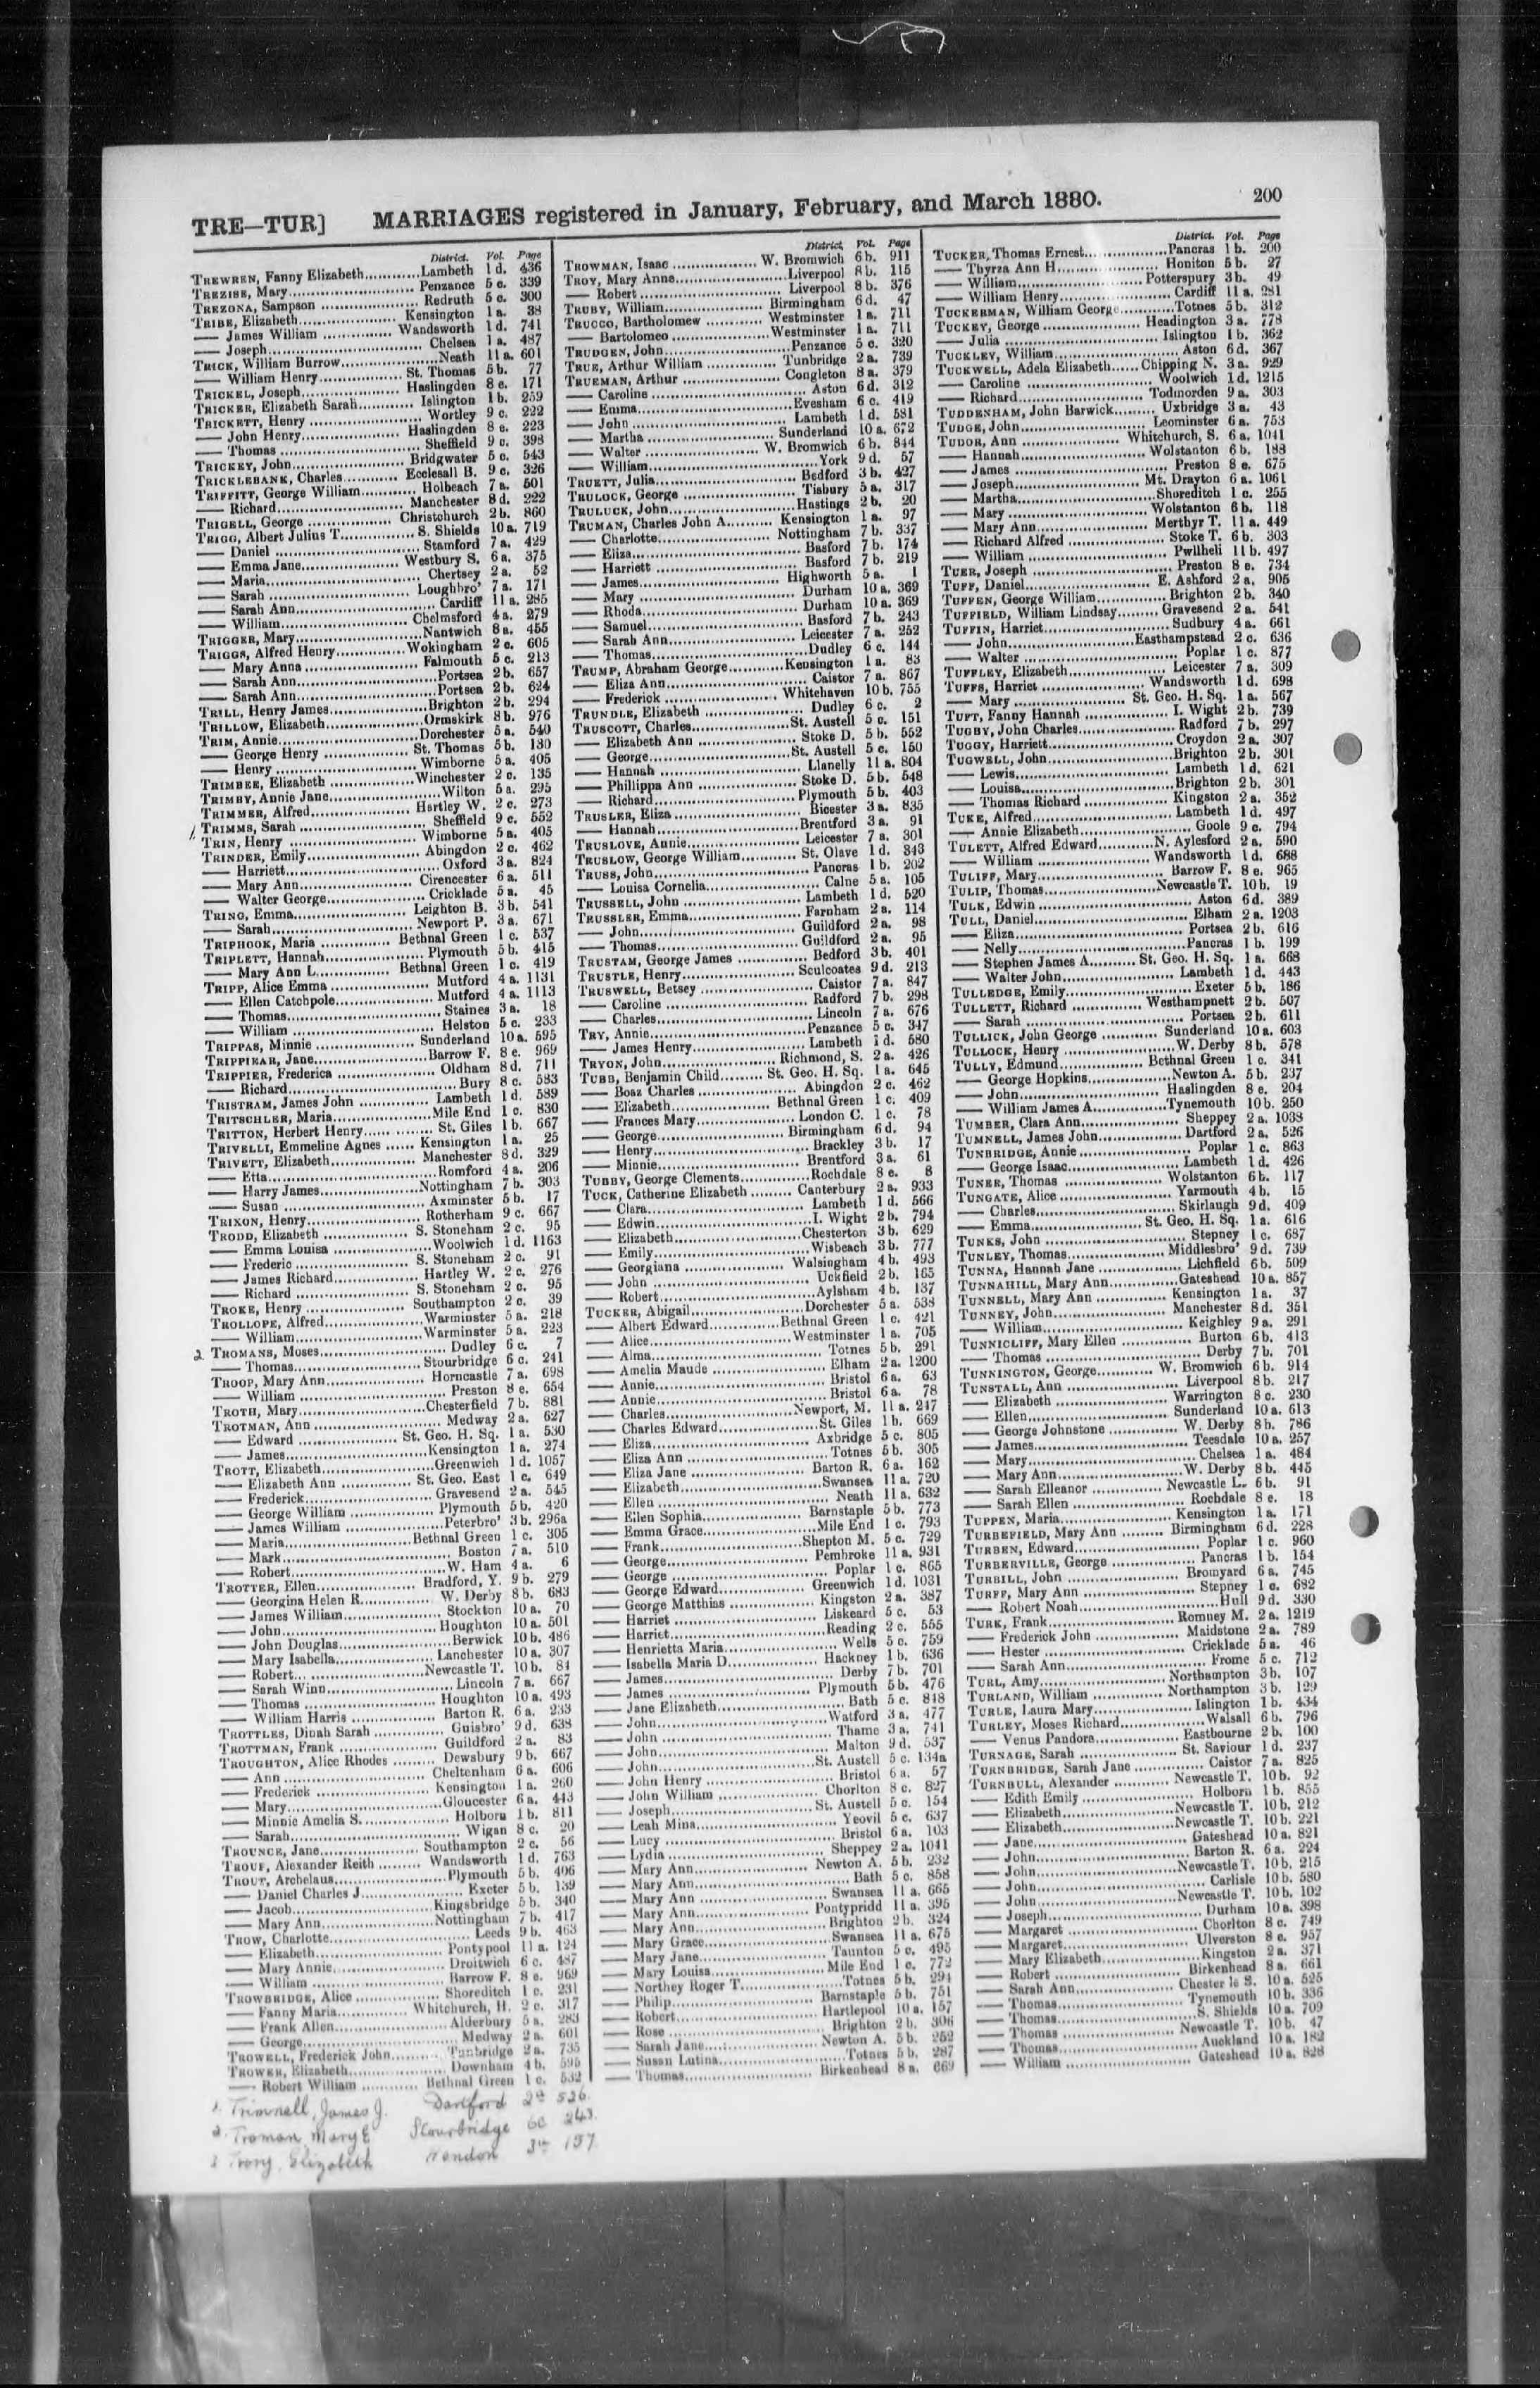 TRE—TUR] MARRIAGES registered in January, February, and March 1880. 200
District. Vol. Page
TREWREN, Fanny Elizabeth............Lambeth 1 d. 436
TREZISE, Mary............Penzance 5 c. 339
TREZONA, Sampson ............Redruth 5 c. 300
TRIBE, Elizabeth............Kensington 1 a. 38
—— James William ............Wandsworth 1 d. 741
—— Joseph............Chelsea 1 a. 487
TRICK, William Burrow............Neath 11 a. 601
—— William Henry............St. Thomas 5 b. 77
TRICKEL, Joseph............Haslingden 8 e. 171
TRICKER, Elizabeth Sarah............Islington 1 b. 259
TRICKETT, Henry ............Wortley 9 c. 222
—— John Henry............Haslingden 8 e. 223
—— Thomas ............Sheffield 9 c. 398
TRICKEY, John............Bridgwater 5 c. 543
TRICKLEBANK, Charles............Ecclesall B. 9 c. 326
TRIFFITT, George William............Holbeach 7 a. 501
—— Richard............Manchester 8 d. 222
TRIGELL, George ............Christchurch 2 b. 860
TRIGG, Albert Julius T............S. Shields 10 a. 719
—— Daniel ............Stamford 7 a. 429
—— Emma Jane............Westbury S. 6 a. 375
—— Maria............Chertsey 2 a. 52
—— Sarah ............Loughbro' 7 a. 171
—— Sarah Ann............Cardiff 11 a. 285
—— William............Chelmsford 4 a. 279
TRIGGER, Mary............Nantwich 8 a. 455
TRIGGS, Alfred Henry............Wokingham 2 c. 605
—— Mary Anna ............Falmouth 5 c. 213
—— Sarah Ann............Portsea 2 b. 657
—— Sarah Ann............Portsea 2 b. 624
TRILL, Henry James............Brighton 2 b. 294
TRILLOW, Elizabeth............Ormskirk 8 b. 976
TRIM, Annie............Dorchester 5 a. 540
—— George Henry ............St. Thomas 5 b. 130
—— Henry ............Wimborne 5 a. 405
TRIMBEE, Elizabeth ............Winchester 2 c. 135
TRIMBY, Annie Jane............Wilton 5 a. 295
TRIMMER, Alfred............Hartley W. 2 c. 273
TRIMMS, Sarah ............Sheffield 9 c. 552
1 TRIN, Henry ............Wimborne 5 a. 405
TRINDER, Emily............Abingdon 2 c. 462
—— Harriett............Oxford 3 a. 824
—— Mary Ann............Cirencester 6 a. 511
—— Walter George............Cricklade 5 a. 45
TRING, Emma............Leighton B. 3 b. 541
—— Sarah............Newport P. 3 a. 671
TRIPHOOK, Maria ............Bethnal Green 1 c. 537
TRIPLETT, Hannah............Plymouth 5 b. 415
—— Mary Ann L............Bethnal Green 1 c. 419
TRIPP, Alice Emma ............Mutford 4 a. 1131
—— Ellen Catchpole............Mutford 4 a. 1113
—— Thomas............Staines 3 a. 18
—— William ............Helston 5 c. 233
TRIPPAS, Minnie ............Sunderland 10 a. 595
TRIPPIEAR, Jane............Barrow F. 8 e. 969
TRIPPIER, Frederica ............Oldham 8 d. 711
—— Richard............Bury 8 c. 583
TRISTRAM, James John ............Lambeth 1 d. 589
TRITSCHLER, Maria............Mile End 1 c. 830
TRITTON, Herbert Henry............St. Giles 1 b. 667
TRIVELLI, Emmeline Agnes ......Kensington 1 a. 25
TRIVETT, Elizabeth............Manchester 8 d. 329
—— Etta............Romford 4 a. 206
—— Harry James............Nottingham 7 b. 303
—— Susan ............Axminster 5 b. 17
TRIXON, Henry............Rotherham 9 c. 667
TRODD, Elizabeth ............S. Stoneham 2 c. 95
—— Emma Louisa ............Woolwich 1 d. 1163
—— Frederic ............S. Stoneham 2 c. 91
—— James Richard............Hartley W. 2 c. 276
—— Richard ............S. Stoneham 2 c. 95
TROKE, Henry ............Southampton 2 c. 39
TROLLOPE, Alfred............Warminster 5 a. 218
—— William............Warminster 5 a. 223
2 TROMANS, Moses............Dudley 6 c. 7
—— Thomas............Stourbridge 6 c. 241
TROOP, Mary Ann............Horncastle 7 a. 698
—— William ............Preston 8 e. 654
TROTH, Mary............Chesterfield 7 b. 881
TROTMAN, Ann ............Medway 2 a. 627
—— Edward ............St. Geo. H. Sq. 1 a. 530
—— James............Kensington 1 a. 274
TROTT, Elizabeth............Greenwich 1 d. 1057
—— Elizabeth Ann ............St. Geo. East 1 c. 649
—— Frederick............Gravesend 2 a. 545
—— George William ............Plymouth 5 b. 420
—— James William ............Peterbro' 3 b. 296a
—— Maria............Bethnal Green 1 c. 305
—— Mark............Boston 7 a. 510
—— Robert............W. Ham 4 a. 6
TROTTER, Ellen............Bradford, Y. 9 b. 279
—— Georgina Helen R............W. Derby 8 b. 683
—— James William............Stockton 10 a. 70
—— John............Houghton 10 a. 501
—— John Douglas............Berwick 10 b. 486
—— Mary Isabella............Lanchester 10 a. 307
—— Robert............Newcastle T. 10 b. 84
—— Sarah Winn............Lincoln 7 a. 667
—— Thomas ............Houghton 10 a. 493
—— William Harris ............Barton R. 6 a. 233
TROTTLES, Dinah Sarah ............Guisbro' 9 d. 638
TROTTMAN, Frank ............Guildford 2 a. 83
TROUGHTON, Alice Rhodes .........Dewsbury 9 b. 667
—— Ann ............Cheltenham 6 a. 606
—— Frederick ............Kensington 1 a. 260
—— Mary............Gloucester 6 a. 443
—— Minnie Amelia S............Holborn 1 b. 811
—— Sarah............Wigan 8 c. 20
TROUNCE, Jane............Southampton 2 c. 56
TROUP, Alexander Reith .........Wandsworth 1 d. 763
TROUT, Archelaus............Plymouth 5 b. 406
—— Daniel Charles J............Exeter 5 b. 139
—— Jacob............Kingsbridge 5 b. 340
—— Mary Ann............Nottingham 7 b. 417
TROW, Charlotte............Leeds 9 b. 463
—— Elizabeth............Pontypool 11 a. 124
—— Mary Annie............Droitwich 6 c. 487
—— William ............Barrow F. 8 e. 969
TROWBRIDGE, Alice ............Shoreditch 1 c. 231
—— Fanny Maria............Whitchurch, H. 2 c. 317
—— Frank Allen............Alderbury 5 a. 283
—— George............Medway 2 a. 601
TROWELL, Frederick John............Tunbridge 2 a. 735
TROWER, Elizabeth............Downham 4 b. 595
—— Robert William ............Bethnal Green 1 c. 532
1. Trimnell, James J. Dartford 2a 526.
2. Troman Mary E Stourbridge 6c 243.
3 Trory, Elizabeth Hendon 3a 157
District. Vol. Page
TROWMAN, Isaac ............W. Bromwich 6 b. 911
TROY, Mary Anne............Liverpool 8 b. 115
—— Robert............Liverpool 8 b. 376
TRUBY, William............Birmingham 6 d. 47
TRUCCO, Bartholomew ............Westminster 1 a. 711
—— Bartolomeo ............Westminster 1 a. 711
TRUDGEN, John............Penzance 5 c. 320
TRUE, Arthur William ............Tunbridge 2 a. 739
TRUEMAN, Arthur ............Congleton 8 a. 379
—— Caroline ............Aston 6 d. 312
—— Emma............Evesham 6 c. 419
—— John ............Lambeth 1 d. 581
—— Martha ............Sunderland 10 a. 672
—— Walter ............W. Bromwich 6 b. 844
—— William............York 9 d. 57
TRUETT, Julia............Bedford 3 b. 427
TRULOCK, George ............Tisbury 5 a. 317
TRULUCK, John............Hastings 2 b. 20
TRUMAN, Charles John A............Kensington 1 a. 97
—— Charlotte............Nottingham 7 b. 337
—— Eliza............Basford 7 b. 174
—— Harriett ............Basford 7 b. 219
—— James............Highworth 5 a. 1
—— Mary ............Durham 10 a. 369
—— Rhoda............Durham 10 a. 369
—— Samuel............Basford 7 b. 243
—— Sarah Ann............Leicester 7 a. 252
—— Thomas............Dudley 6 c. 144
TRUMP, Abraham George............Kensington 1 a. 83
—— Eliza Ann............Caistor 7 a. 867
—— Frederick ............Whitehaven 10 b. 755
TRUNDLE, Elizabeth ............Dudley 6 c. 2
TRUSCOTT, Charles............St. Austell 5 c. 151
—— Elizabeth Ann ............Stoke D. 5 b. 552
—— George............St. Austell 5 c. 150
—— Hannah ............Llanelly 11 a. 804
—— Phillippa Ann ............Stoke D. 5 b. 548
—— Richard............Plymouth 5 b. 403
TRUSLER, Eliza ............Bicester 3 a. 835
—— Hannah............Brentford 3 a. 91
TRUSLOVE, Annie............Leicester 7 a. 301
TRUSLOW, George William............St. Olave 1 d. 343
TRUSS, John............Pancras 1 b. 202
—— Louisa Cornelia............Calne 5 a. 105
TRUSSELL, John ............Lambeth 1 d. 520
TRUSSLER, Emma............Farnham 2 a. 114
—— John............Guildford 2 a. 98
—— Thomas............Guildford 2 a. 95
TRUSTAM, George James ............Bedford 3 b. 401
TRUSTLE, Henry............Sculcoates 9 d. 213
TRUSWELL, Betsey ............Caistor 7 a. 847
—— Caroline ............Radford 7 b. 298
—— Charles............Lincoln 7 a. 676
TRY, Annie............Penzance 5 c. 347
—— James Henry............Lambeth 1 d. 580
TRYON, John............Richmond, S. 2 a. 426
TUBB, Benjamin Child.........St. Geo. H. Sq. 1 a. 645
—— Boaz Charles ............Abingdon 2 c. 462
—— Elizabeth............Bethnal Green 1 c. 409
—— Frances Mary............London C. 1 c. 78
—— George............Birmingham 6 d. 94
—— Henry............Brackley 3 b. 17
—— Minnie............Brentford 3 a. 61
TUBBY, George Clements............Rochdale 8 e. 8
TUCK, Catherine Elizabeth .........Canterbury 2 a. 933
—— Clara............Lambeth 1 d. 566
—— Edwin............I. Wight 2 b. 794
—— Elizabeth............Chesterton 3 b. 629
—— Emily............Wisbeach 3 b. 777
—— Georgiana ............Walsingham 4 b. 493
—— John ............Uckfield 2 b. 165
—— Robert............Aylsham 4 b. 137
TUCKER, Abigail............Dorchester 5 a. 538
—— Albert Edward............Bethnal Green 1 c. 421
—— Alice............Westminster 1 a. 705
—— Alma............Totnes 5 b. 291
—— Amelia Maude ............Elham 2 a. 1200
—— Annie............Bristol 6 a. 63
—— Annie............Bristol 6 a. 78
—— Charles............Newport, M. 11 a. 247
—— Charles Edward............St. Giles 1 b. 669
—— Eliza............Axbridge 5 c. 805
—— Eliza Ann ............Totnes 5 b. 305
—— Eliza Jane ............Barton R. 6 a. 162
—— Elizabeth............Swansea 11 a. 720
—— Ellen ............Neath 11 a. 632
—— Ellen Sophia............Barnstaple 5 b. 773
—— Emma Grace............Mile End 1 c. 793
—— Frank............Shepton M. 5 c. 729
—— George............Pembroke 11 a. 931
—— George ............Poplar 1 c. 865
—— George Edward............Greenwich 1 d. 1031
—— George Matthias ............Kingston 2 a. 387
—— Harriet ............Liskeard 5 c. 53
—— Harriet............Reading 2 c. 555
—— Henrietta Maria............Wells 5 c. 759
—— Isabella Maria D............Hackney 1 b. 636
—— James............Derby 7 b. 701
—— James ............Plymouth 5 b. 476
—— Jane Elizabeth............Bath 5 c. 848
—— John............Watford 3 a. 477
—— John ............Thame 3 a. 741
—— John............Malton 9 d. 537
—— John............St. Austell 5 c. 134a
—— John Henry ............Bristol 6 a. 57
—— John William ............Chorlton 8 c. 827
—— Joseph............St. Austell 5 c. 154
—— Leah Mina............Yeovil 5 c. 637
—— Lucy ............Bristol 6 a. 103
—— Lydia ............Sheppey 2 a. 1041
—— Mary Ann............Newton A. 5 b. 232
—— Mary Ann............Bath 5 c. 858
—— Mary Ann ............Swansea 11 a. 665
—— Mary Ann............Pontypridd 11 a. 395
—— Mary Ann............Brighton 2 b. 324
—— Mary Grace............Swansea 11 a. 675
—— Mary Jane............Taunton 5 c. 495
—— Mary Louisa............Mile End 1 c. 772
—— Northey Roger T............Totnes 5 b. 294
—— Philip............Barnstaple 5 b. 751
—— Robert............Hartlepool 10 a. 157
—— Rose ............Brighton 2 b. 306
—— Sarah Jane............Newton A. 5 b. 252
—— Susan Lutina............Totnes 5 b. 287
—— Thomas............Birkenhead 8 a. 669
District. Vol. Page
TUCKER, Thomas Ernest............Pancras 1 b. 200
—— Thyrza Ann H............Honiton 5 b. 27
—— William............Potterspury 3 b. 49
—— William Henry............Cardiff 11 a. 281
TUCKERMAN, William George............Totnes 5 b. 312
TUCKEY, George ............Headington 3 a. 778
—— Julia ............Islington 1 b. 362
TUCKLEY, William............Aston 6 d. 367
TUCKWELL, Adela Elizabeth......Chipping N. 3 a. 929
—— Caroline ............Woolwich 1 d. 1215
—— Richard............Todmorden 9 a. 303
TUDDENHAM, John Barwick.........Uxbridge 3 a. 43
TUDGE, John............Leominster 6 a. 753
TUDOR, Ann ............Whitchurch, S. 6 a. 1041
—— Hannah............Wolstanton 6 b. 188
—— James ............Preston 8 e. 675
—— Joseph............Mt. Drayton 6 a. 1061
—— Martha............Shoreditch 1 c. 255
—— Mary ............Wolstanton 6 b. 118
—— Mary Ann............Merthyr T. 11 a. 449
—— Richard Alfred ............Stoke T. 6 b. 303
—— William ............Pwllheli 11 b. 497
TUER, Joseph ............Preston 8 e. 734
TUFF, Daniel............E. Ashford 2 a. 905
TUFFEN, George William............Brighton 2 b. 340
TUFFIELD, William Lindsay.........Gravesend 2 a. 541
TUFFIN, Harriet............Sudbury 4 a. 661
—— John............Easthampstead 2 c. 636
—— Walter ............Poplar 1 c. 877
TUFFLEY, Elizabeth............Leicester 7 a. 309
TUFFS, Harriet ............Wandsworth 1 d. 698
—— Mary ............St. Geo. H. Sq. 1 a. 567
TUFT, Fanny Hannah ............I. Wight 2 b. 739
TUGBY, John Charles............Radford 7 b. 297
TUGGY, Harriett............Croydon 2 a. 307
TUGWELL, John............Brighton 2 b. 301
—— Lewis............Lambeth 1 d. 621
—— Louisa............Brighton 2 b. 301
—— Thomas Richard ............Kingston 2 a. 352
TUKE, Alfred............Lambeth 1 d. 497
—— Annie Elizabeth............Goole 9 c. 794
TULETT, Alfred Edward............N. Aylesford 2 a. 590
—— William ............Wandsworth 1 d. 688
TULIFF, Mary............Barrow F. 8 e. 965
TULIP, Thomas............Newcastle T. 10 b. 19
TULK, Edwin ............Aston 6 d. 389
TULL, Daniel............Elham 2 a. 1203
—— Eliza............Portsea 2 b. 616
—— Nelly............Pancras 1 b. 199
—— Stephen James A............St. Geo. H. Sq. 1 a. 668
—— Walter John............Lambeth 1 d. 443
TULLEDGE, Emily............Exeter 5 b. 186
TULLETT, Richard ............Westhampnett 2 b. 507
—— Sarah ............Portsea 2 b. 611
TULLICK, John George ............Sunderland 10 a. 603
TULLOCK, Henry ............W. Derby 8 b. 578
TULLY, Edmund............Bethnal Green 1 c. 341
—— George Hopkins............Newton A. 5 b. 237
—— John............Haslingden 8 e. 204
—— William James A............Tynemouth 10 b. 250
TUMBER, Clara Ann............Sheppey 2 a. 1038
TUMNELL, James John............Dartford 2 a. 526
TUNBRIDGE, Annie............Poplar 1 c. 863
—— George Isaac............Lambeth 1 d. 426
TUNER, Thomas ............Wolstanton 6 b. 117
TUNGATE, Alice ............Yarmouth 4 b. 15
—— Charles............Skirlaugh 9 d. 409
—— Emma............St. Geo. H. Sq. 1 a. 616
TUNKS, John ............Stepney 1 c. 687
TUNLEY, Thomas............Middlesbro' 9 d. 739
TUNNA, Hannah Jane ............Lichfield 6 b. 509
TUNNAHILL, Mary Ann............Gateshead 10 a. 857
TUNNELL, Mary Ann ............Kensington 1 a. 37
TUNNEY, John............Manchester 8 d. 351
—— William............Keighley 9 a. 291
TUNNICLIFF, Mary Ellen ............Burton 6 b. 413
—— Thomas ............Derby 7 b. 701
TUNNINGTON, George............W. Bromwich 6 b. 914
TUNSTALL, Ann ............Liverpool 8 b. 217
—— Elizabeth ............Warrington 8 c. 230
—— Ellen............Sunderland 10 a. 613
—— George Johnstone ............W. Derby 8 b. 786
—— James............Teesdale 10 a. 257
—— Mary............Chelsea 1 a. 484
—— Mary Ann............W. Derby 8 b. 445
—— Sarah Elleanor ............Newcastle L. 6 b. 91
—— Sarah Ellen ............Rochdale 8 e. 18
TUPPEN, Maria............Kensington 1 a. 171
TURBEFIELD, Mary Ann .........Birmingham 6 d. 228
TURBEN, Edward............Poplar 1 c. 960
TURBERVILLE, George ............Pancras 1 b. 154
TURBILL, John ............Bromyard 6 a. 745
TURFF, Mary Ann ............Stepney 1 c. 682
—— Robert Noah............Hull 9 d. 330
TURK, Frank............Romney M. 2 a. 1219
—— Frederick John ............Maidstone 2 a. 789
—— Hester ............Cricklade 5 a. 46
—— Sarah Ann............Frome 5 c. 712
TURL, Amy............Northampton 3 b. 107
TURLAND, William ............Northampton 3 b. 129
TURLE, Laura Mary............Islington 1 b. 434
TURLEY, Moses Richard............Walsall 6 b. 796
—— Venus Pandora............Eastbourne 2 b. 100
TURNAGE, Sarah ............St. Saviour 1 d. 237
TURNBRIDGE, Sarah Jane ............Caistor 7 a. 825
TURNBULL, Alexander ............Newcastle T. 10 b. 92
—— Edith Emily............Holborn 1 b. 855
—— Elizabeth............Newcastle T. 10 b. 212
—— Elizabeth............Newcastle T. 10 b. 221
—— Jane............Gateshead 10 a. 821
—— John............Barton R. 6 a. 224
—— John............Newcastle T. 10 b. 215
—— John............Carlisle 10 b. 580
—— John............Newcastle T. 10 b. 102
—— Joseph............Durham 10 a. 398
—— Margaret ............Chorlton 8 c. 749
—— Margaret............Ulverston 8 e. 957
—— Mary Elizabeth............Kingston 2 a. 371
—— Robert ............Birkenhead 8 a. 661
—— Sarah Ann............Chester le S. 10 a. 525
—— Thomas............Tynemouth 10 b. 336
—— Thomas............S. Shields 10 a. 709
—— Thomas ............Newcastle T. 10 b. 47
—— Thomas............Auckland 10 a. 182
—— William ............Gateshead 10 a. 828